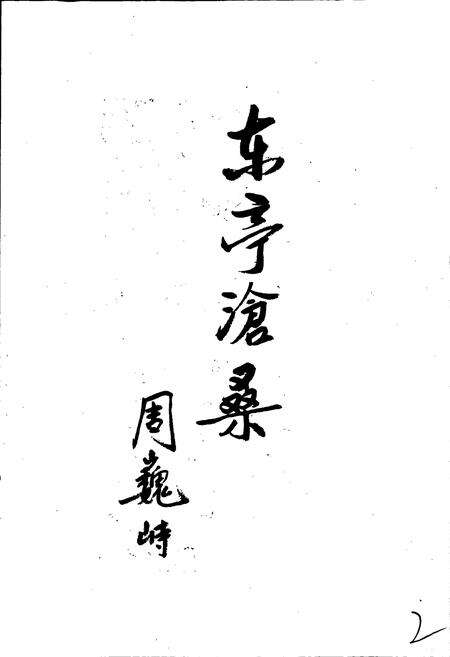 东亭滄桑
周巍峙
2